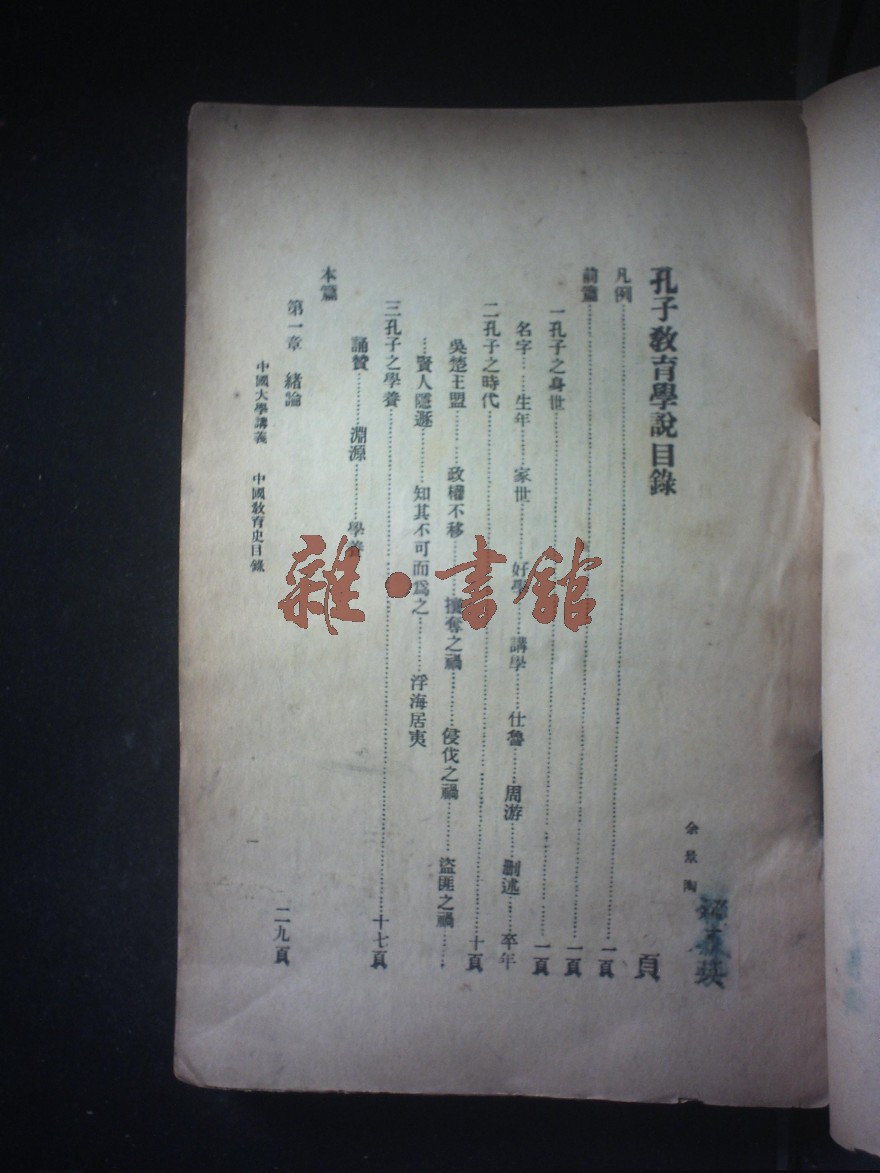 孔子教育學說目錄
余景陶
頁
凡例……一頁
前篇……一頁
一孔子之身世……一頁
名字……生年……家世……好學……講學……仕魯……周游……刪述……卒年
二孔子之時代……十頁
吳楚王盟……政權不移……攘奪之禍……侵伐之禍……盜匪之禍……
……賢人隱遯……知其不可而爲之……浮海居夷
三孔子之學養……十七頁
誦贊……淵源……學養
本篇
第一章 緒論 二九頁
中國大學講義 中國教育史目錄 一
雜·書館